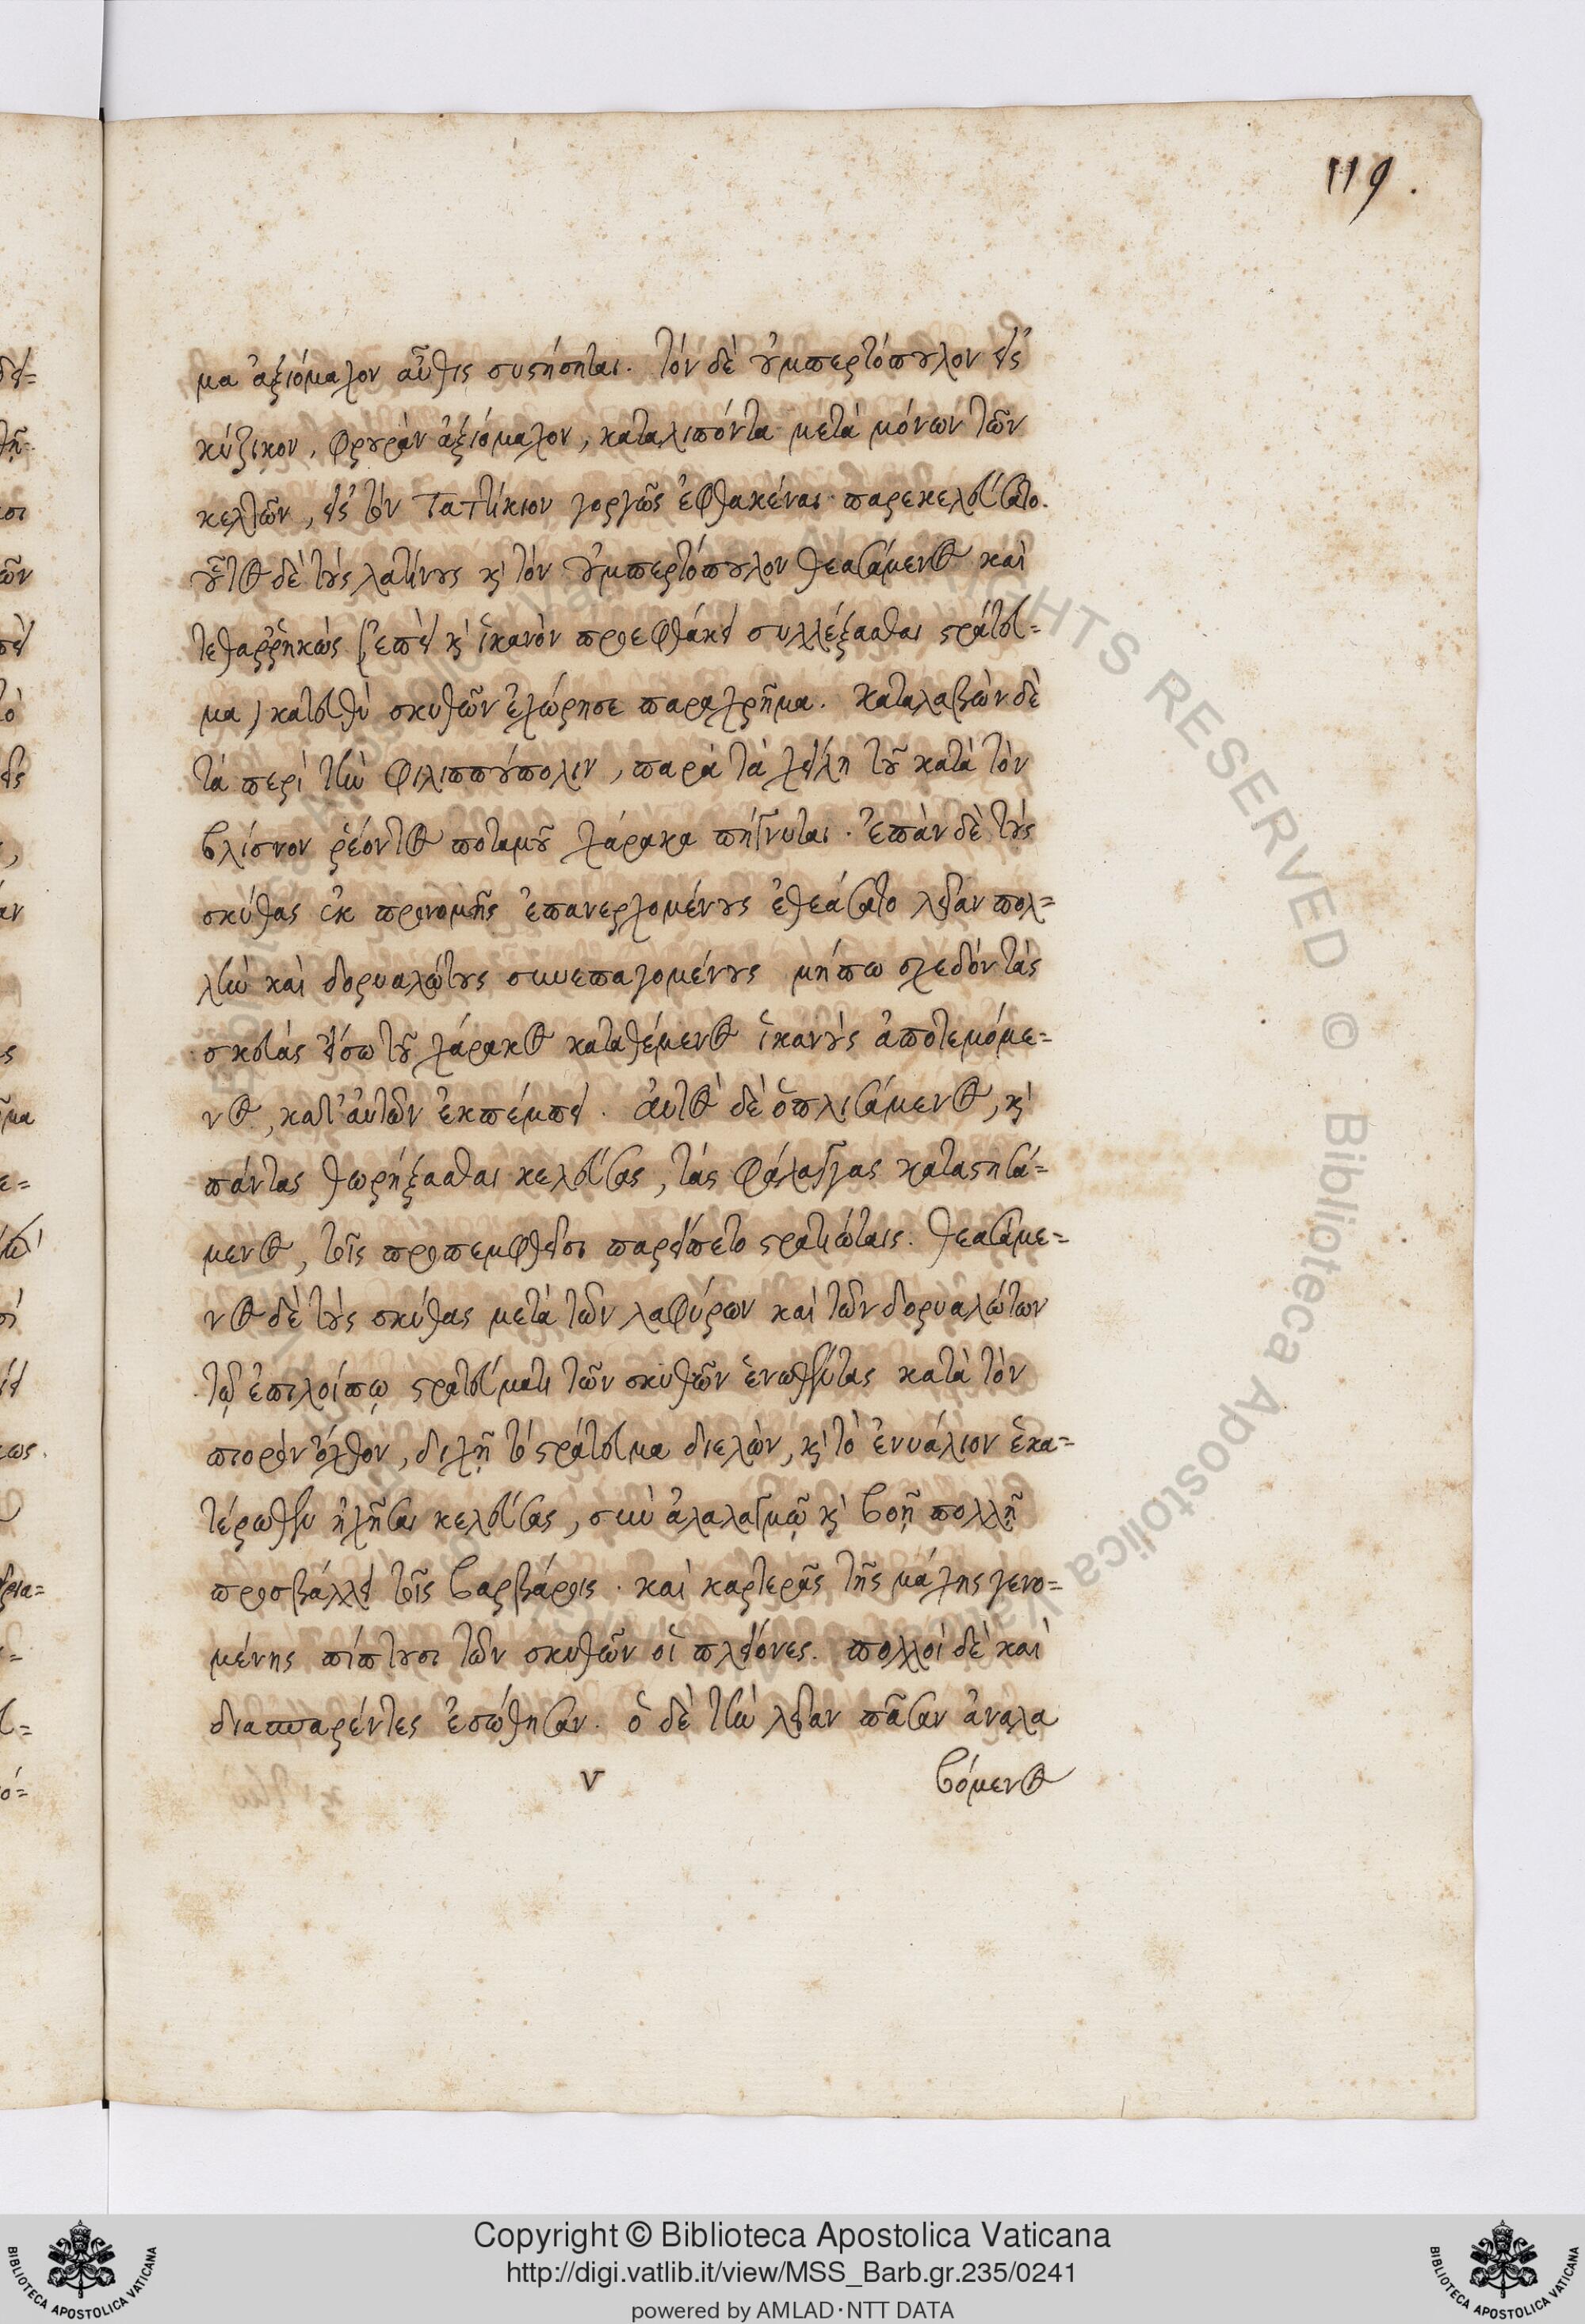 119.
μα ἀξιόμαχον αὖθις συστήσηται. τὸν δὲ οὐμπερτόπουλον εἰς
κύζικον, φρουρὰν ἀξιόμαχον, καταλιπόντα μετὰ μόνων τῶν
κελτῶν, εἰς τὸν Τατίκιον γοργῶς ἐφθακέναι παρεκελεύσατο.
οὗτος δὲ τοὺς λατίνους καὶ τὸν οὐμπερτόπουλον θεασάμενος καὶ
τεθαῤῥηκὼς (ἐπεὶ καὶ ἱκανὸν προεφθάκει συλλέξασθαι στράτευ=
μα) κατευθὺ σκυθῶν ἐχώρησε παραχρῆμα. καταλαβὼν δὲ
τὰ περὶ τὴν Φιλιππούπολιν, παρὰ τὰ χείλη τοῦ κατὰ τὸν
βλίσνον ῥέοντος ποταμοῦ χάρακα πήγνυται. Ἐπὰν δὲ τοὺς
σκύθας ἐκ προνομῆς ἐπανερχομένους ἐθεάσατο λείαν πολ=
λὴν καὶ δορυαλώτους συνεπαγομένους μήπω σχεδὸν τὰς
σκευὰς εἴσω τοῦ χάρακος καταθέμενος ἱκανοὺς ἀποτεμόμε=
νος, κατ' αὐτῶν ἐκπέμπει. αὐτὸς δὲ ὁπλισάμενος, καὶ
πάντας θωρήξασθαι κελεύσας, τὰς φάλαγγας καταστησά=
μενος, τοῖς προπεμφθεῖσι παρείπετο στρατιώταις. θεασάμε=
νος δὲ τοὺς σκύθας μετὰ τῶν λαφύρων καὶ τῶν δορυαλώτων
τῷ ἐπιλοίπῳ στρατεύματι τῶν σκυθῶν ἑνωθέντας κατὰ τὸν
διχῇ τὸ στράτευμα διελὼν, καὶ τὸ ἐνυάλιον ἑκα=
τέρωθεν ἠχῆσαι κελεύσας, σὺν ἀλαλαγμῷ καὶ βοῇ πολλῇ
προσβάλλει τοῖς βαρβάροις. καὶ καρτερᾶς τῆς μάχης γενο=
μένης πίπτουσι τῶν σκυθῶν οἱ πλείονες. πολλοὶ δὲ καὶ
διασπαρέντες ἐσώθησαν. ὁ δὲ τὴν λείαν πᾶσαν ἀναλα
v βόμενος
Copyright © Biblioteca Apostolica Vaticana
http://digi.vatlib.it/view/MSS_Barb.gr.235/0241
powered by AMLAD·NTT DATA